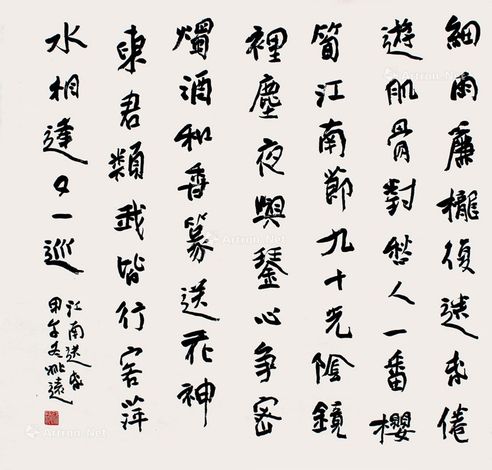 細雨廉櫳復送春倦
遊肌骨對愁人一番櫻
筍江南節九十光陰鏡
裡塵夜與琴心爭密
燭酒和香篆送花神
東君類我皆行客萍
水相逢又一巡
江南送春
甲午冬姚遠
Artron.Net